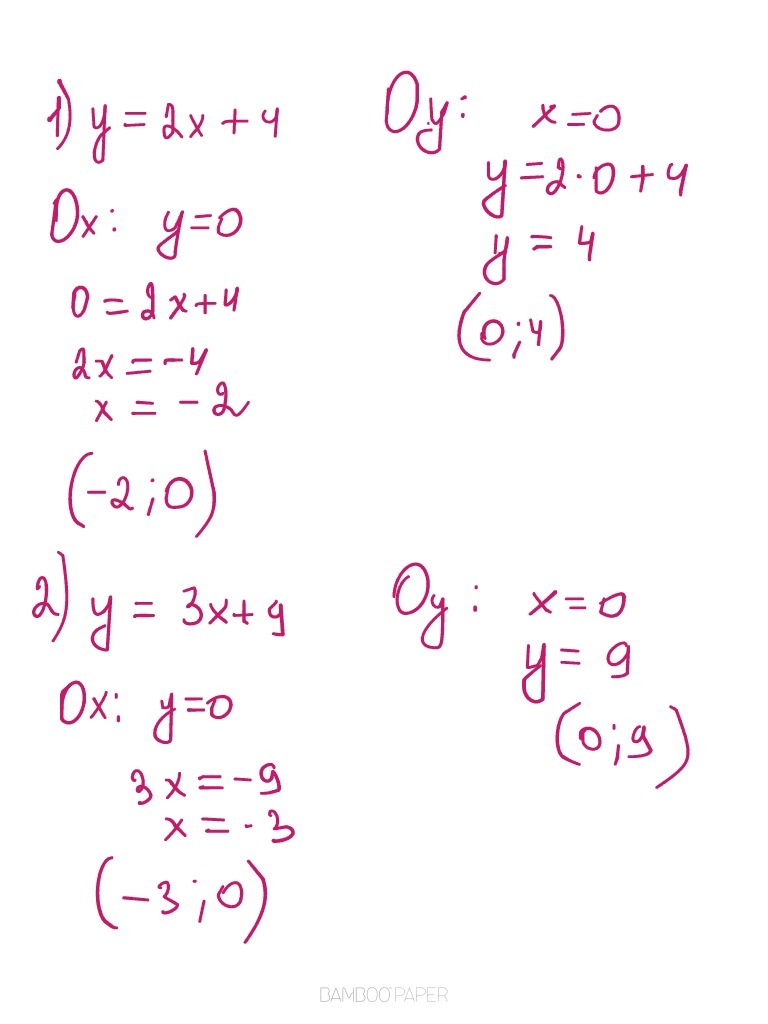 1) y = 2x + 4
Ox: y=0
0 = 2x+4
2x = -4
x = -2
(-2;0)
Oy: x=0
y=2·0+4
y = 4
(0;4)
2) y = 3x+9
Ox: y=0
3x=-9
x=-3
(-3;0)
Oy: x=0
y= 9
(0;9)
BAMBOO PAPER